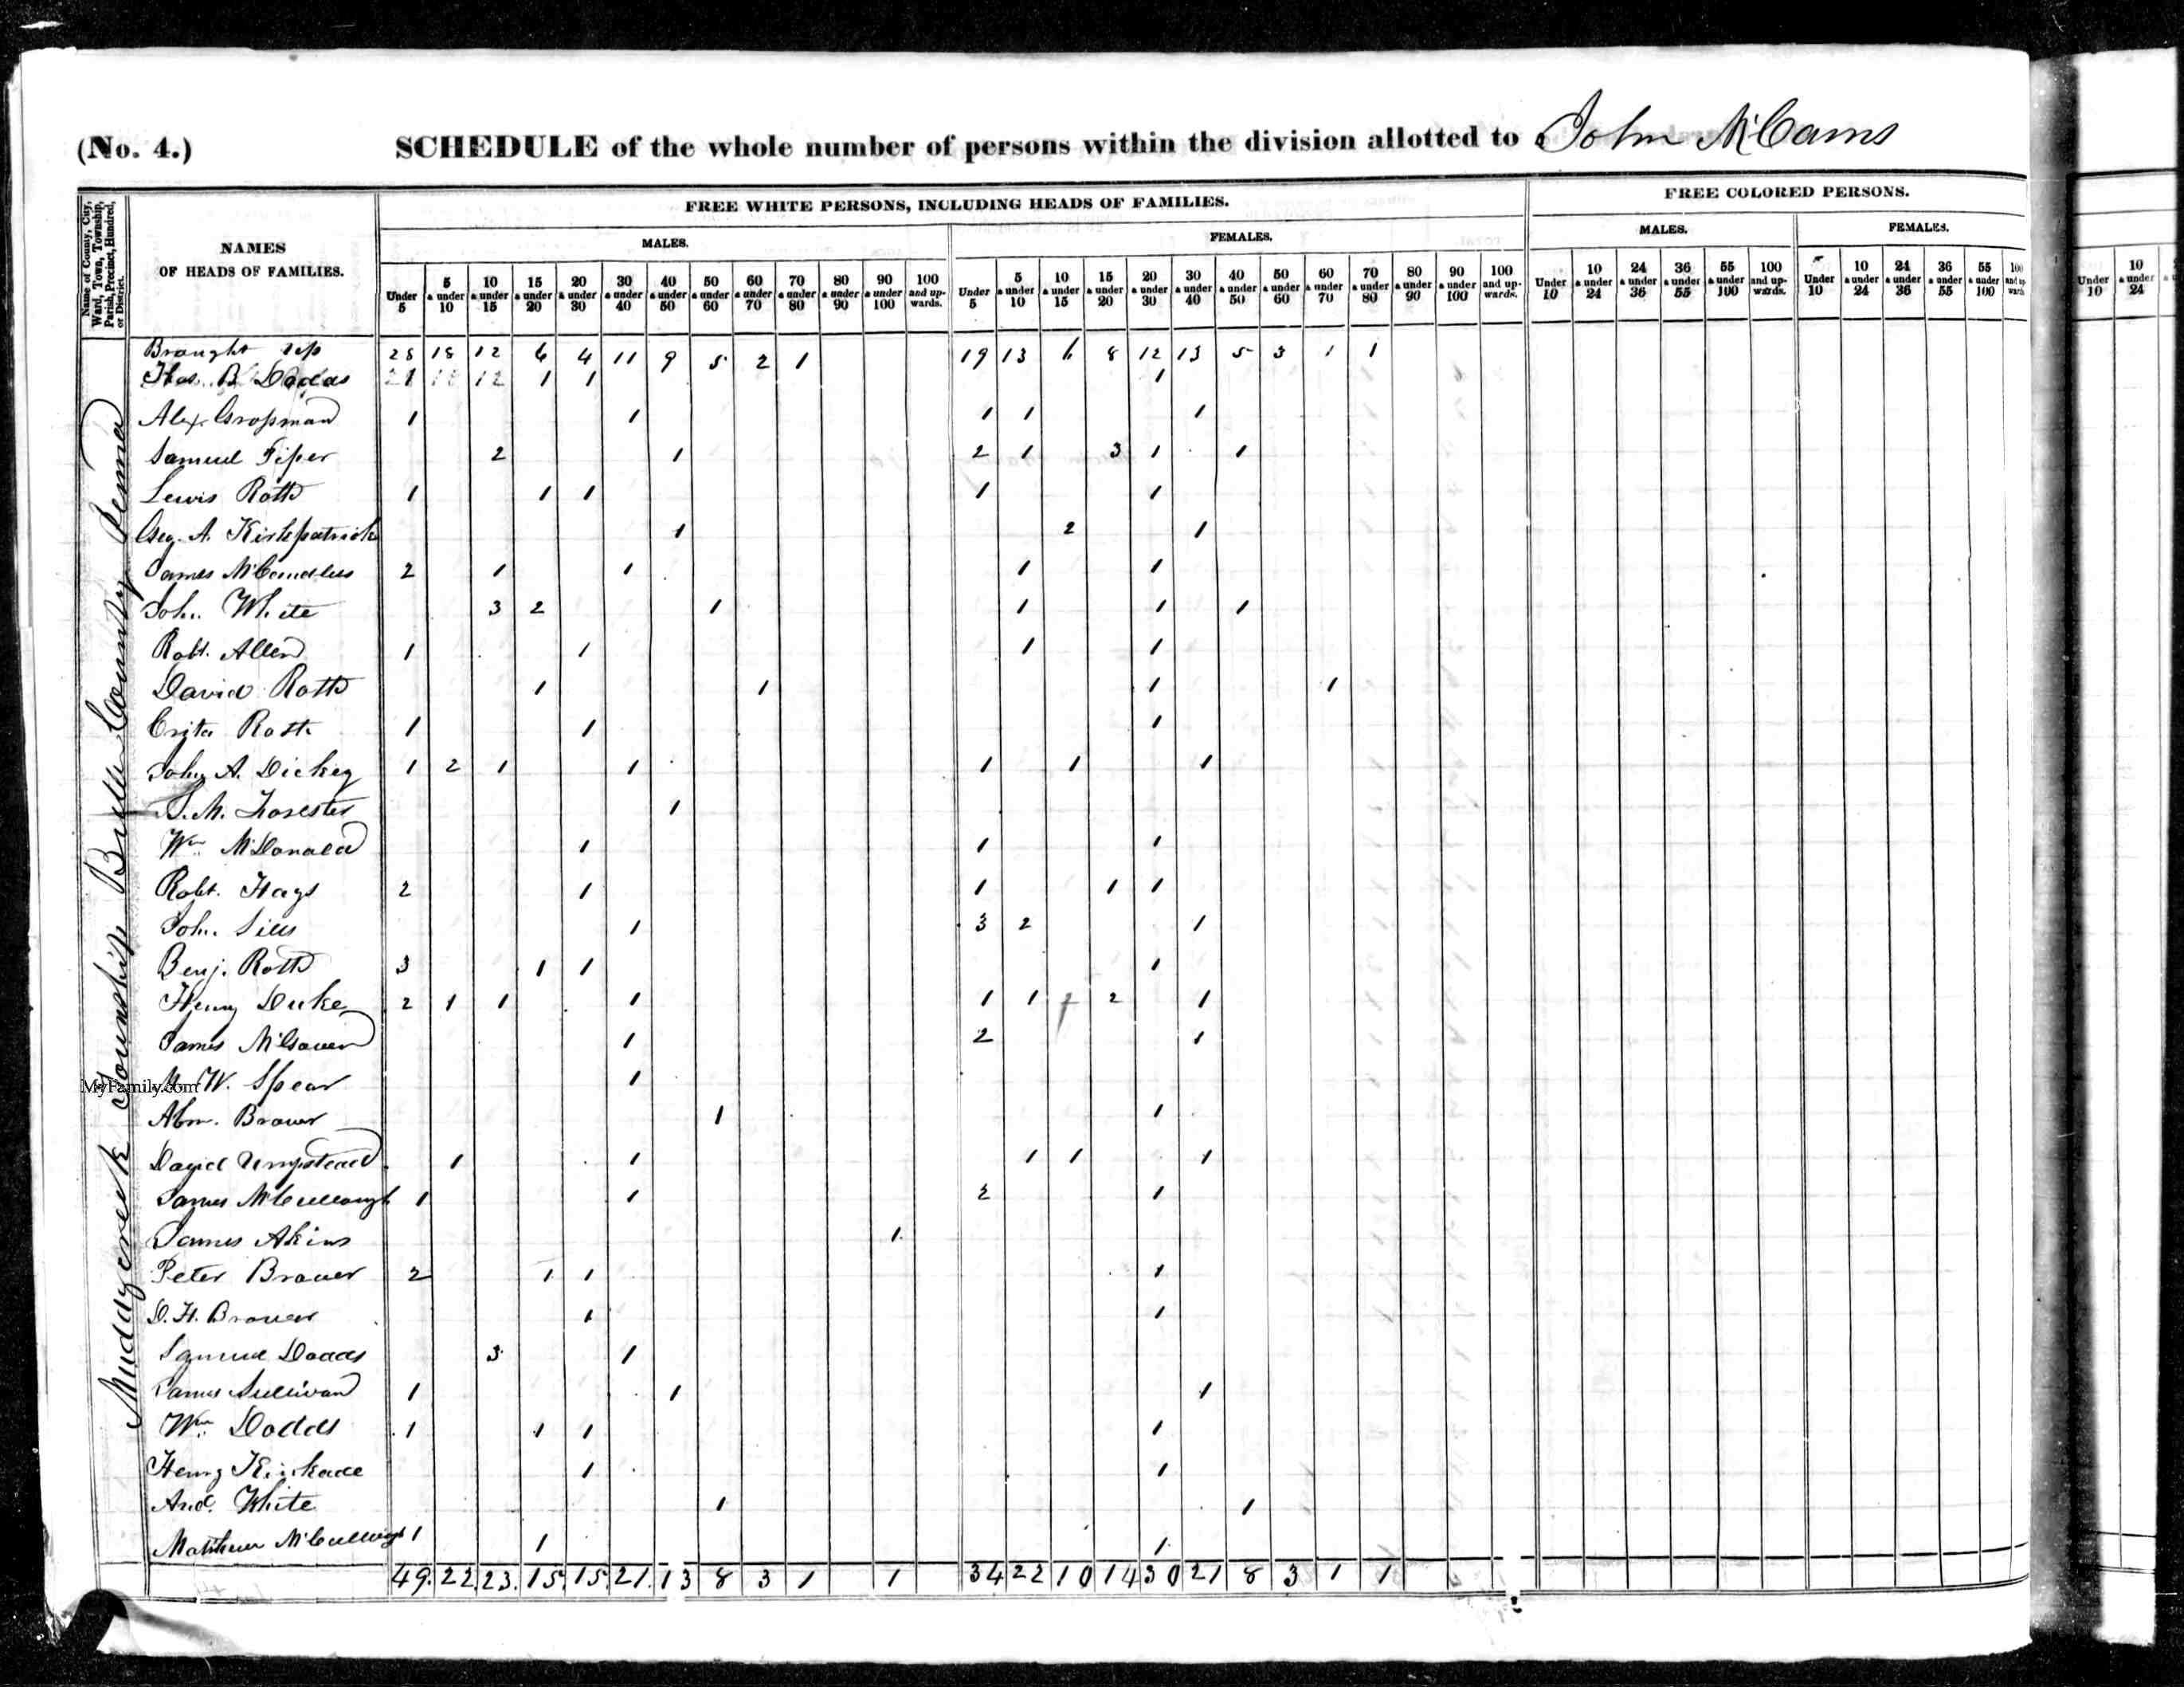 (No. 4.) SCHEDULE of the whole number of persons within the division allotted to John McCams
Name of County, City, Ward, Town, Township, Parish, Precinct, Hundred, or District.
NAMES OF HEADS OF FAMILIES.
FREE WHITE PERSONS, INCLUDING HEADS OF FAMILIES.
FREE COLORED PERSONS.
MALES. FEMALES. MALES. FEMALES.
Under 5 5 & under 10 10 & under 15 15 & under 20 20 & under 30 30 & under 40 40 & under 50 50 & under 60 60 & under 70 70 & under 80 80 & under 90 90 & under 100 100 and upwards. Under 5 5 & under 10 10 & under 15 15 & under 20 20 & under 30 30 & under 40 40 & under 50 50 & under 60 60 & under 70 70 & under 80 80 & under 90 90 & under 100 100 and upwards. Under 10 10 & under 24 24 & under 36 36 & under 55 55 & under 100 100 and upwards. Under 10 10 & under 24 24 & under 36 36 & under 55 55 & under 100 100 and up wards Under 10 10 & under 24
Muddycreek Township Butler County Penna
Brought up 28 18 12 6 4 11 9 5 2 1 19 13 6 8 12 13 5 3 1 1
B Dodds 1 1 1 1
Alex Grossman 1 1 1 1 1
Samuel Piper 2 1 2 1 3 1 1
Lewis Roth 1 1 1 1 1
Geo. A. Kirkpatrick 1 2 1
James McCandless 2 1 1 1 1
John White 3 2 1 1 1 1
Robt. Allen 1 1 1 1
David Roth 1 1 1 1
Roth 1 1 1
John A. Dickey 1 2 1 1 1 1 1
M. Forester 1
Wm McDonald 1 1 1
Robt. Hays 2 1 1 1 1
John Sills 1 3 2 1
Benj. Roth 3 1 1 1
Henry Duke 2 1 1 1 1 1 1 2 1
James McGowen 1 2 1
W. Spear 1
MyFamily.com
Abm. Brower 1 1
David Umpstead 1 1 1 1 1
James McCullough 1 1 2 1
James Akins 1
Peter Brower 2 1 1 1
D. H. Brower 1 1
Samuel Dodds 3 1
James Sullivan 1 1 1
Wm Dodds 1 1 1 1
Henry Kinkade 1 1
And. White 1 1
Matthew McCullough 1 1 1
49 22 23 15 15 21 13 8 3 1 1 34 22 10 14 30 21 8 3 1 1